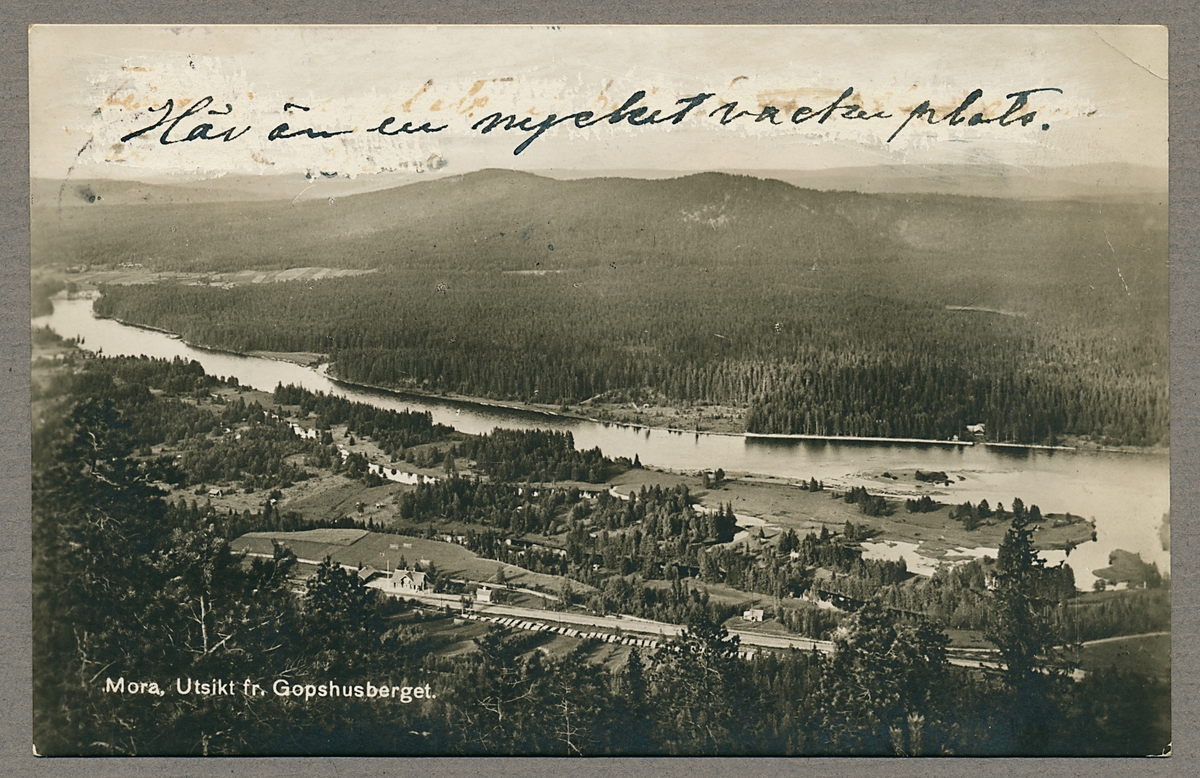 Här är en mycket vacker plats.
Mora, Utsikt fr. Gopshusberget.